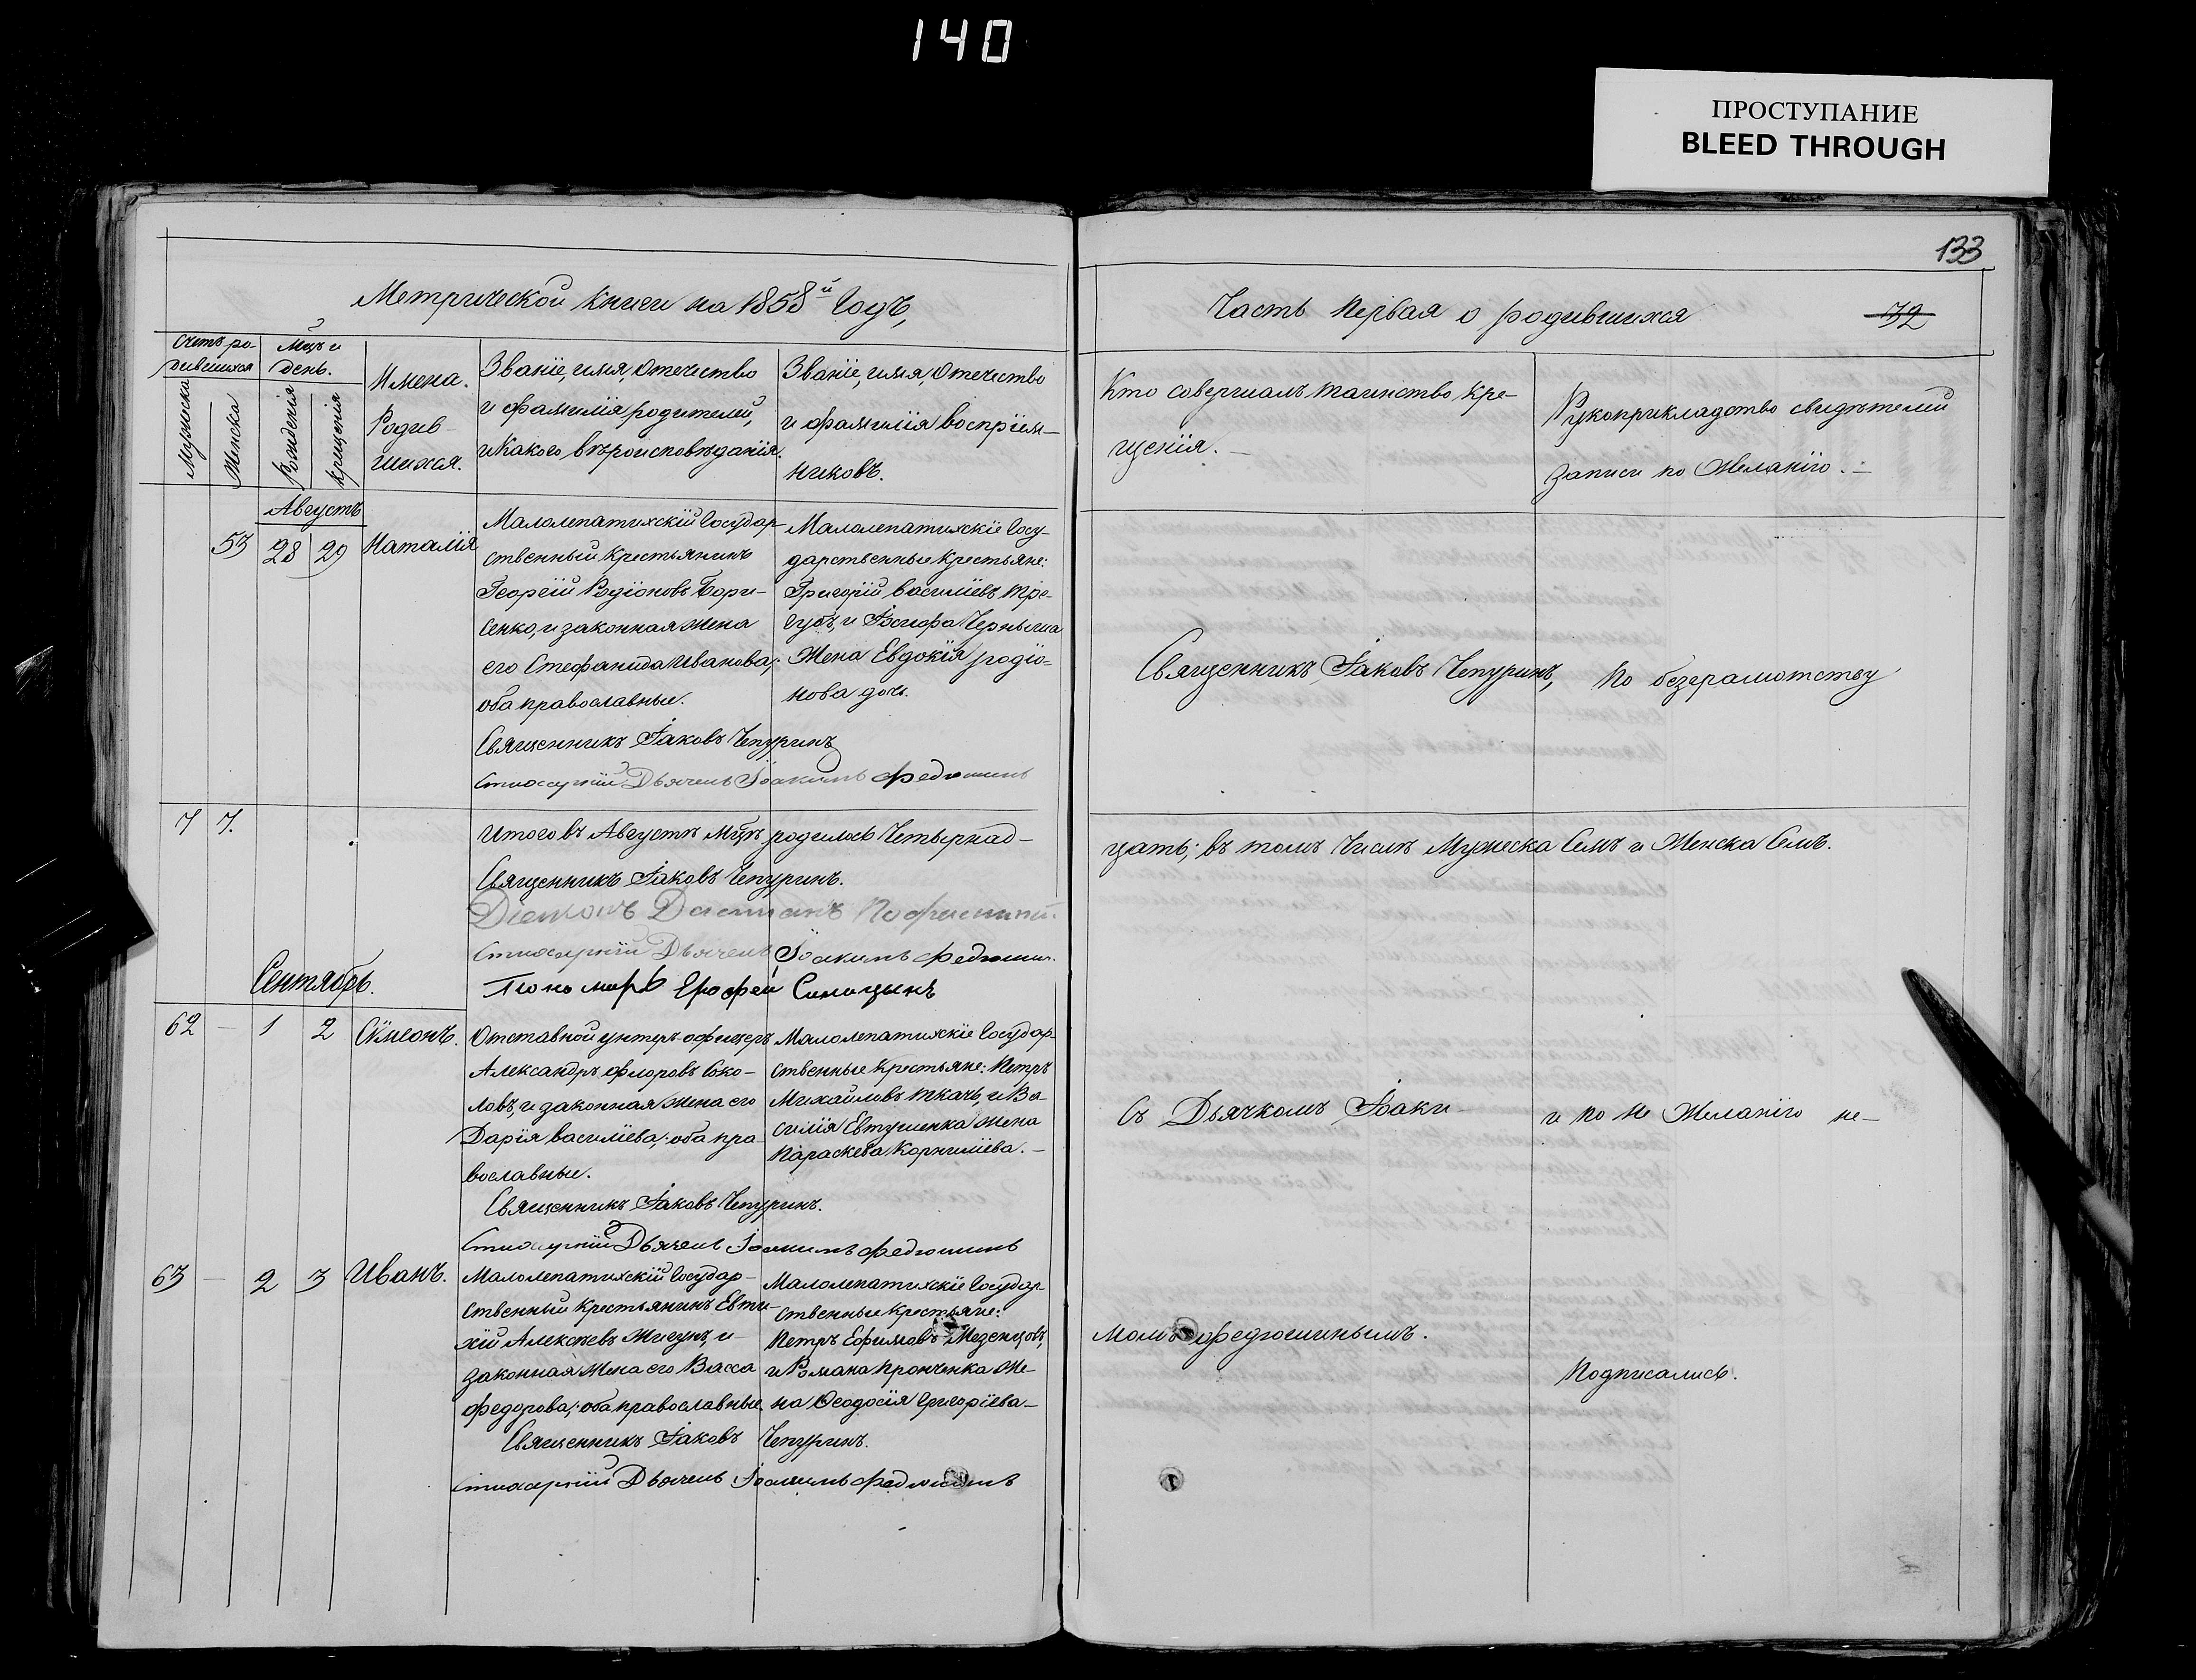 140
ПРОСТУПАНИЕ
BLEED THROUGH
133
Метрической книги на 1858й Годъ,
Часть Первая о родившихся
32
Счетъ ро-
дившихся
Мужеска
Женска
Мцъ и
день.
Рожденія
Крещенія
Имена.
Родив-
шихся.
Званіе, имя, Отечество
и фамилія родителей,
и Какого вѣроисповѣданія.
Званіе, имя, Отечество
и фамилія воспріем-
никовъ.
Кто совершалъ таинство кре-
щенія. —
Рукоприкладство свидѣтелей
записи по Желанію. —
Августъ
53 28 29 Наталія
Малолепатихскій Государ-
ственный Крестьянинъ
Георгій Родіоновъ Бори-
сенко, и законная жена
его Стефанида Иванова;
оба православные.
Священникъ Іаковъ Чепуринъ
Стихарній Дьячекъ Іоакимъ Федюшинъ
Малолепатихскіе Госу-
дарственные Крестьяне:
Григорій Васильевъ Тре-
губъ, и Іосифа Черныша
Жена Евдокія Родіо-
нова дочь.
Священникъ Іаковъ Чепуринъ,
По безграмотству
7 7.
Итого въ Августѣ Мцѣ родилось Четырнад-
цать; въ томъ Числѣ Мужеска Семь и Женска Семь.
Священникъ Іаковъ Чепуринъ.
Діаконъ
Стихарній Дьячекъ Іоакимъ Федюшинъ.
Пономарь Ерофей Синицынъ
Сентябрь.
62 — 1 2 Сѵмеонъ.
Отставной унтеръ-офицеръ
Александръ Флоровъ Соко-
ловъ, и законная жена его
Дарія Васильева; оба пра-
вославные.
Священникъ Іаковъ Чепуринъ.
Стихарній Дьячекъ Іоакимъ Федюшинъ
Малолепатихскіе Государ-
ственные Крестьяне: Петръ
Михайловъ Ткачъ, и Ва-
силія Евтушенка жена
Параскева Корнилиева. —
Съ Дьячкомъ Іоаки-
и по не Желанію не-
63 — 2 3 Иванъ.
Малолепатихскій Государ-
ственный Крестьянинъ Евти-
хій Алексѣевъ Жигунъ, и
законная Жена его Васса
Федорова; оба православные
Священникъ Іаковъ Чепуринъ.
Стихарній Дьячекъ Іоакимъ Федюшинъ
Малолепатихскіе Государ-
ственные Крестьяне:
Петръ Ефимовъ Мезенцовъ,
и Романа Пронченка Же-
на Ѳеодосія Григоріева —
момъ Федюшинымъ.
Подписались.